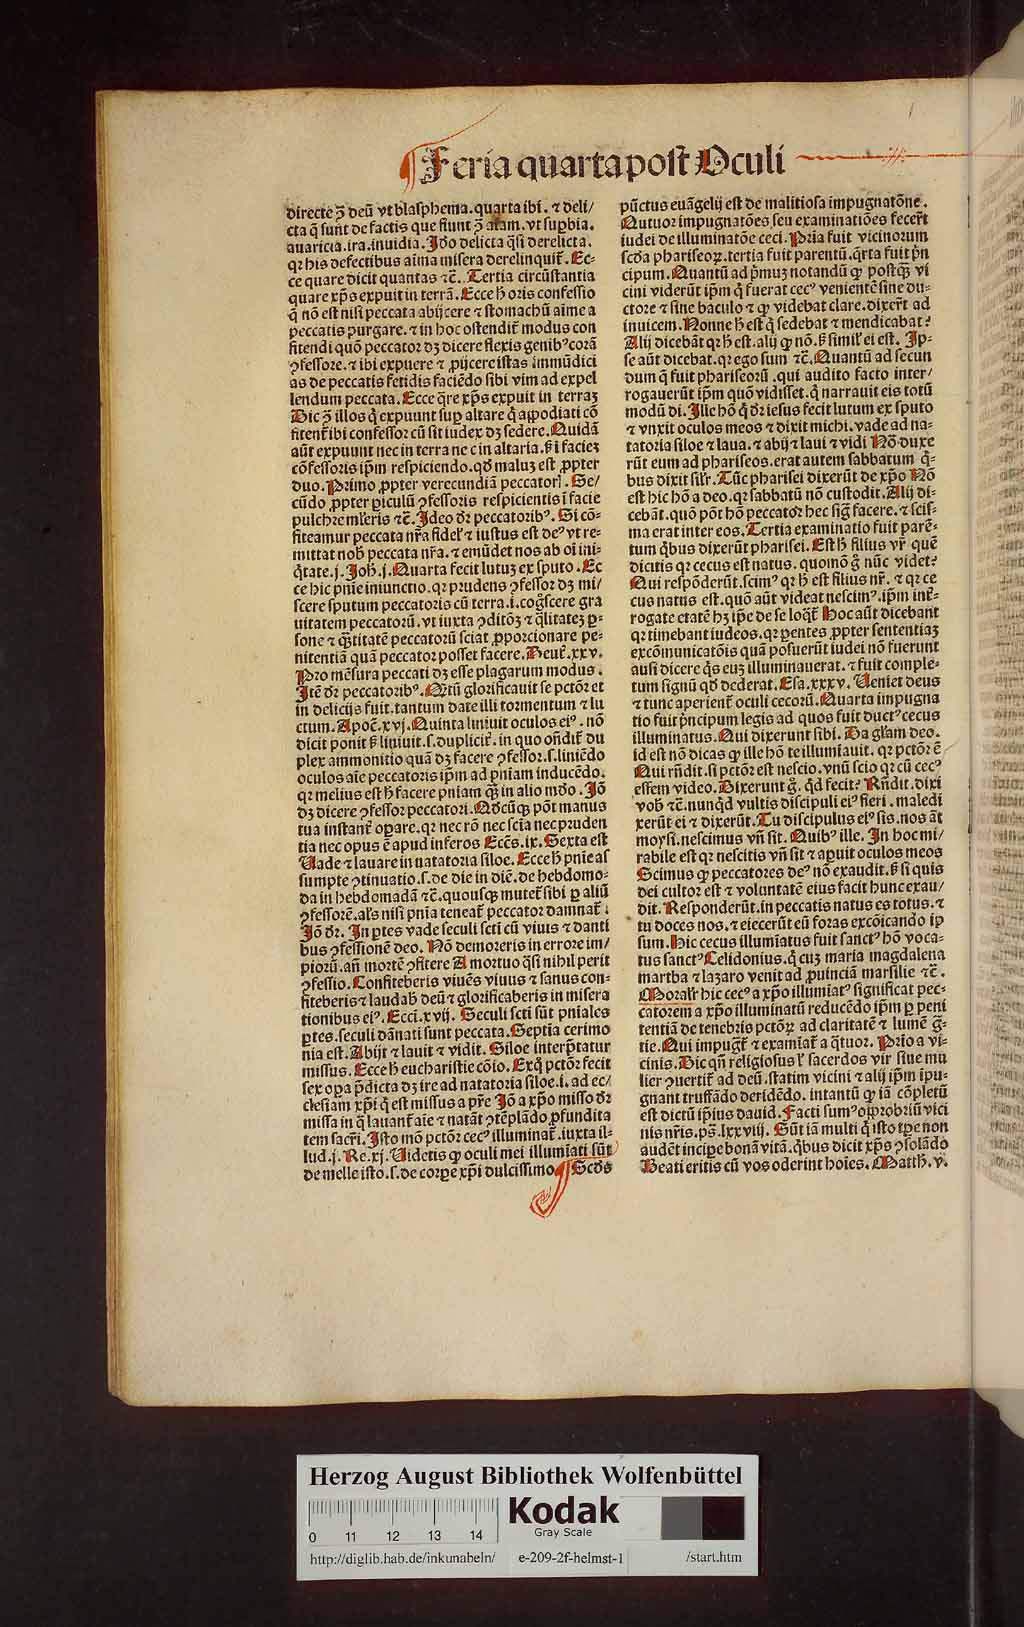 Feria quarta post Oculi
directe ꝯ̄ deū vt blasphema. quarta ibi. ⁊ deli/
cta q̄ sunt de factis que fiunt ꝯ̄ aīam. vt suꝑbia.
auaricia. ira. inuidia. Jdō delicta q̄si derelicta.
qꝛ his defectibus aīma misera derelinquit᷑. Ec⸗
ce quare dicit quantas ⁊c̄. Tertia circūstantia
quare xp̄s expuit in terrā. Ecce ħ oris confessio
q̄ nō est nisi peccata abijcere ⁊ stomachū aīme a
peccatis purgare. ⁊ in hoc ostendit᷑ modus con
fitendi quō peccator dꝫ dicere flexis genibꝰ corā
ꝯfessore. ⁊ ibi expuere ⁊ ꝓijcere istas immūdici
as de peccatis fetidis faciēdo sibi vim ad expel
lendum peccata. Ecce q̄re xp̄s expuit in terraꝫ
Hic ꝯ̄ illos q̇ expuunt suꝑ altare q̇ apodiati cō
fitent᷑ ibi confessor cū sit iudex dꝫ sedere. Quidā
aūt expuunt nec in terra nec in altaria. sꝫ i facieꝫ
cōfessoris ip̄m respiciendo. qd̄ maluꝫ est ꝓpter
duo. Primo ꝓpter verecundiā peccatorꝭ. Se/
cūdo ꝓpter ꝑiculū ꝯfessoris respicientis ī facie
pulchre mlīeris ⁊c̄. Jdeo dr̄ peccatoribꝰ. Si cō⸗
fiteamur peccata nr̄a fidelꝭ ⁊ iustus est deꝰ vt re⸗
mittat nob̄ peccata nr̄a. ⁊ emūdet nos ab oī ini⸗
q̇tate. j. Joħ. j. Quarta fecit lutuꝫ ex sputo. Ec
ce hic pn̄ie iniunctio. qꝛ prudens ꝯfessor dꝫ mi/
scere sputum peccatoris cū terra .i. cog̊scere gra
uitatem peccatorū. vt iuxta ꝯditōꝫ ⁊ q̄litateꝫ ꝑ⸗
sone ⁊ q̄titatē peccatorū sciat ꝓporcionare pe⸗
nitentiā quā peccator posset facere. Deut᷑. xxv.
Pro mēsura peccati dꝫ esse plagarum modus.
Jtē dr̄ peccatoribꝰ. Qr̄tū glorificauit se pctōr et
in delicijs fuit. tantum date illi tormentum ⁊ lu
ctum. Apoc̄. xvj. Quinta liniuit oculos eiꝰ. nō
dicit ponit sꝫ liniuit. s. dupliciť. in quo on̄dit᷑ du
plex ammonitio quā dꝫ facere ꝯfessor. s. liniēdo
oculos aīe peccatoris ip̄m ad pn̄iam inducēdo.
qꝛ melius est ħ facere pn̄iam q̄ꝫ in alio mōdo. Jō
dꝫ dicere ꝯfessor peccatori. Qd̄cūqꝫ pōt manus
tua instant᷑ oꝑare. qꝛ nec rō nec scīa nec pruden
tia nec opus ē apud inferos Ecc̄s. ix. Sexta est
Uade ⁊ lauare in natatoria siloe. Ecce ħ pn̄ie as
sumpte ꝯtinuatio. s. de die in diē. de hebdomo⸗
da in hebdomadā ⁊c̄. quousqꝫ mutet᷑ sibi ꝑ aliū
ꝯfessorē. al̄s nisi pn̄ia teneat᷑ peccator damnat᷑.
Jō dr̄. Jn ꝑtes vade seculi sc̄ti cū viuis ⁊ danti
bus ꝯfessionē deo. Nō demoreris in errore im/
piorū. an̄ mortē ꝯfitere A mortuo q̄si nihil perit
ꝯfessio. Confiteberis viuēs viuus ⁊ sanus con⸗
fiteberis ⁊ laudab̄ deū ⁊ glorificaberis in misera
tionibus eiꝰ. Ecc̄i. xvij. Seculi sc̄ti sūt pn̄iales
ꝑtes. seculi dānati sunt peccata. Septīa cerimo
nia est. Abijt ⁊ lauit ⁊ vidit. Siloe interp̄tatur
missus. Ecce ħ eucharistie cōio. Exq̇ pctōr fecit
sex oꝑa p̄dicta dꝫ ire ad natatoria siloe. i. ad ec/
clesiam xp̄i q̇ est missus a pr̄e Jō a xp̄o misso dr̄
missa in q̄ lauant᷑ aīe ⁊ natāt ꝯtēplādo ꝓfundita
tem sacr̄i. Jsto mō pctōr cecꝰ illuminat᷑. iuxta il⸗
lud. j. Re. xj. Uidetis ꝙ oculi mei illumīati sūt
de melle isto. s. de corꝑe xp̄i dulcissimo ¶ Scd̄s
pūctus euāgelij est de malitiosa impugnatōne.
Qutuor impugnatōes seu examinatiōes fecer̄t
iudei de illuminatōe ceci. Prīa fuit vicinorum
scd̄a phariseoꝝ. tertia fuit parentū. q̄rta fuit p̄n
cipum. Quantū ad p̄muꝫ notandū ꝙ postq̄ꝫ vi
cini viderūt ip̄m q̇ fuerat cecꝰ venientē sine du⸗
ctore ⁊ sine baculo ⁊ ꝙ videbat clare. dixer̄t ad
inuicem. Nonne ħ est q̇ sedebat ⁊ mendicabat?
Alij dicebāt qꝛ ħ est. alij ꝙ nō. sꝫ similꝭ ei est. Jp⸗
se aūt dicebat. qꝛ ego sum ⁊c̄. Quantū ad secun
dum q̄ fuit phariseorū. qui audito facto inter/
rogauerūt ip̄m quō vidisset. q̇ narrauit eis totū
modū di. Jlle hō q̇ dr̄ iesus fecit lutum ex sputo
⁊ vnxit oculos meos ⁊ dixit michi. vade ad na⸗
tatoria siloe ⁊ laua. ⁊ abij ⁊ laui ⁊ vidi Nō duxe
rūt eum ad phariseos. erat autem sabbatum q̇⸗
bus dixit silr̄. Tūc pharisei dixerūt de xp̄o Nō
est hic hō a deo. qꝛ sabbatū nō custodit. Alij di⸗
cebāt. quō pōt hō peccator hec sig̅ facere. ⁊ scis⸗
ma erat inter eos. Tertia examinatio fuit parē⸗
tum q̇bus dixerūt pharisei. Est ħ filius vr̄ quē
dicitis qꝛ cecus est natus. quomō g̊ nūc videt?
Qui respōderūt. scimꝰ qꝛ ħ est filius nr̄. ⁊ qꝛ ce
cus natus est. quō aūt videat nescimꝰ. ip̄m int̄⸗
rogate etatē hꝫ ip̄e de se loq̄t᷑ Hoc aūt dicebant
qꝛ timebant iudeos. qꝛ ꝑentes ꝓpter sententiaꝫ
excōmunicatōis quā posuerūt iudei nō fuerunt
ausi dicere q̇s euꝫ illuminauerat. ⁊ fuit comple⸗
tum signū qd̄ dederat. Esa. xxxv. Ueniet deus
⁊ tunc aperient᷑ oculi cecorū. Quarta impugna
tio fuit p̄ncipum legis ad quos fuit ductꝰ cecus
illuminatus. Qui dixerunt sibi. Da gl̄am deo.
id est nō dicas ꝙ ille hō te illumīauit. qꝛ pctōr ē
Qui rn̄dit. si pctōr est nescio. vnū scio qꝛ cū cecꝰ
essem video. Dixerunt g̊. q̇d fecit? Rn̄dit. dixi
vob̄ ⁊c̄. nunq̇d vultis discipuli eiꝰ fieri. maledi
xerūt ei ⁊ dixerūt. Tu discipulus eiꝰ sis. nos āt
moysi. nescimus vn̄ sit. Quibꝰ ille. Jn hoc mi/
rabile est qꝛ nescitis vn̄ sit ⁊ aꝑuit oculos meos
Scimus ꝙ peccatores deꝰ nō exaudit. sꝫ si quis
dei cultor est ⁊ voluntatē eius facit hunc exau/
dit. Responderūt. in peccatis natus es totus. ⁊
tu doces nos. ⁊ eiecerūt eū foras excōicando ip̄
sum. Hic cecus illumīatus fuit sanctꝰ hō voca⸗
tus sanctꝰ Celidonius. q̇ cuꝫ maria magdalena
martha ⁊ lazaro venit ad ꝓuinciā marsilie ⁊c̄.
Moralr̄ hic cecꝰ a xp̄o illumīatꝰ significat pec⸗
catorem a xp̄o illuminatū reducēdo ip̄m ꝑ peni
tentiā de tenebris pctōꝝ ad claritatē ⁊ lumē g̅⸗
tie. Qui impugt᷑ ⁊ examīat᷑ a q̄tuor. Prīo a vi⸗
cinis. Hic qn̄ religiosus lꝭ sacerdos vir siue mu
lier ꝯuertit᷑ ad deū. statim vicini ⁊ alij ip̄m īpu⸗
gnant truffādo deridēdo. intantū ꝙ iā cōpletū
est dictū ip̄ius dauid. Facti sumꝰ opprobriū vici
nis nr̄is. ps̄. lxxviij. Sūt iā multi q̇ isto tꝑe non
audēt inciꝑe bonā vitā. q̇bus dicit xp̄s ꝯsolādo
Beati eritis cū vos oderint hoīes. Matth. v.
Herzog August Bibliothek Wolfenbüttel
Kodak
Gray Scale
0 11 12 13 14
http://diglib.hab.de/inkunabeln/ e-209-2f-helmst-1 /start.htm